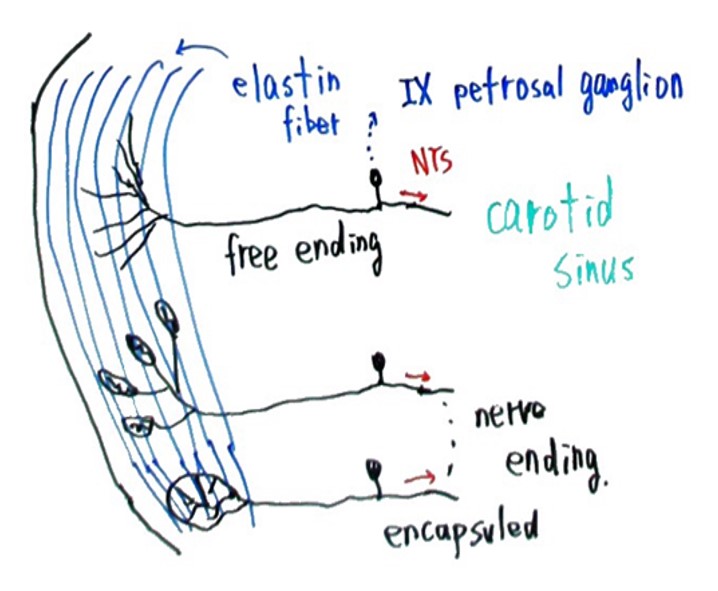 elastin
fiber
IX petrosal ganglion
NTS
carotid
sinus
free ending
nerve
ending.
encapsuled